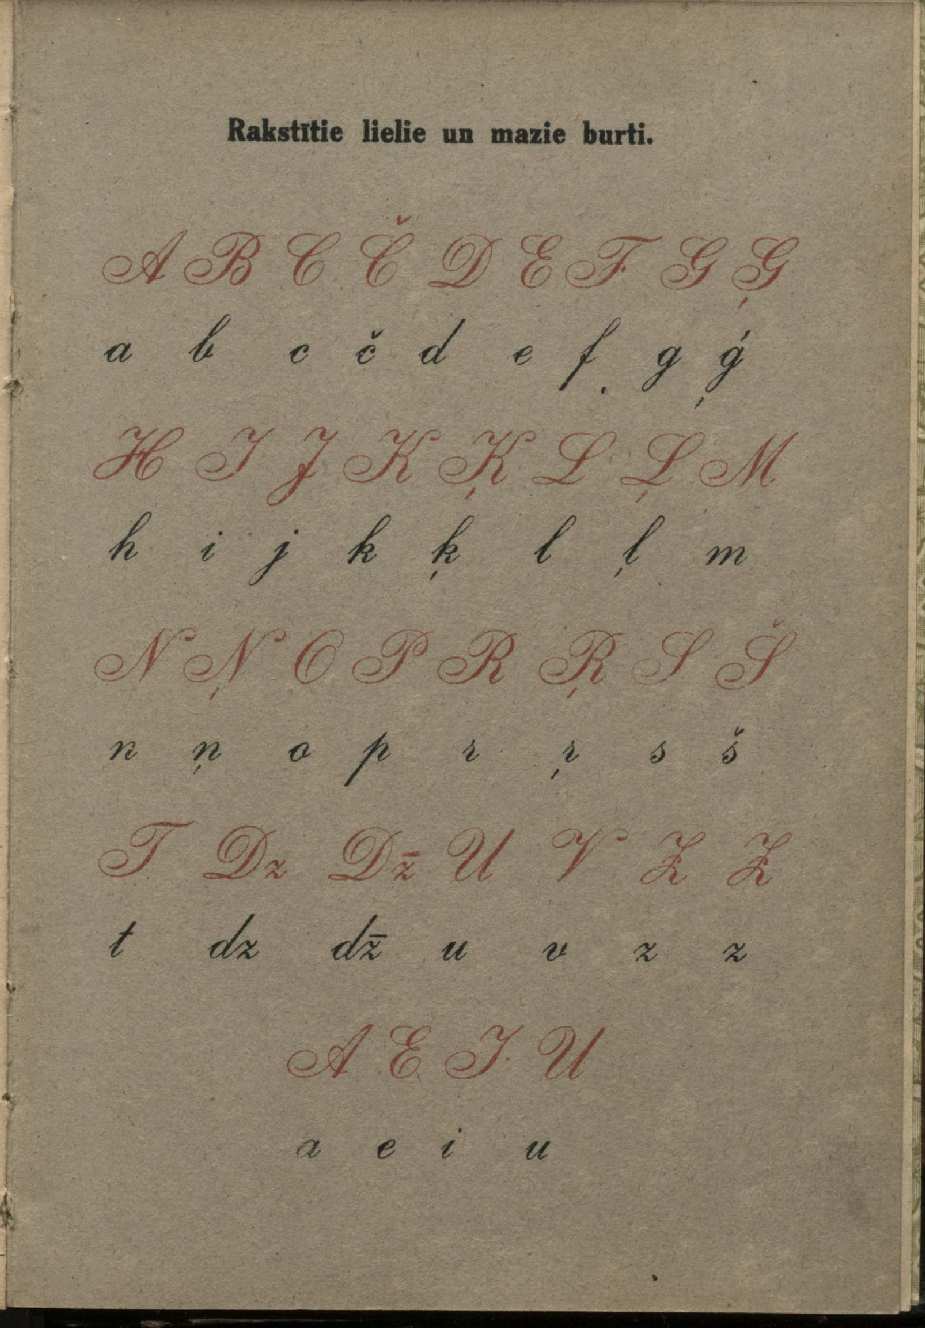 Rakstītie lielie un mazie burti.
A B C Č D E F G Ģ
a b c č d e f g ģ
H I J K Ķ L Ļ M
h i j k ķ l ļ m
N Ņ O P R Ŗ S Š
n ņ o p r ŗ s š
T Dz Dž U V Z Z
t dz dž u v z z
A E I U
a e i u